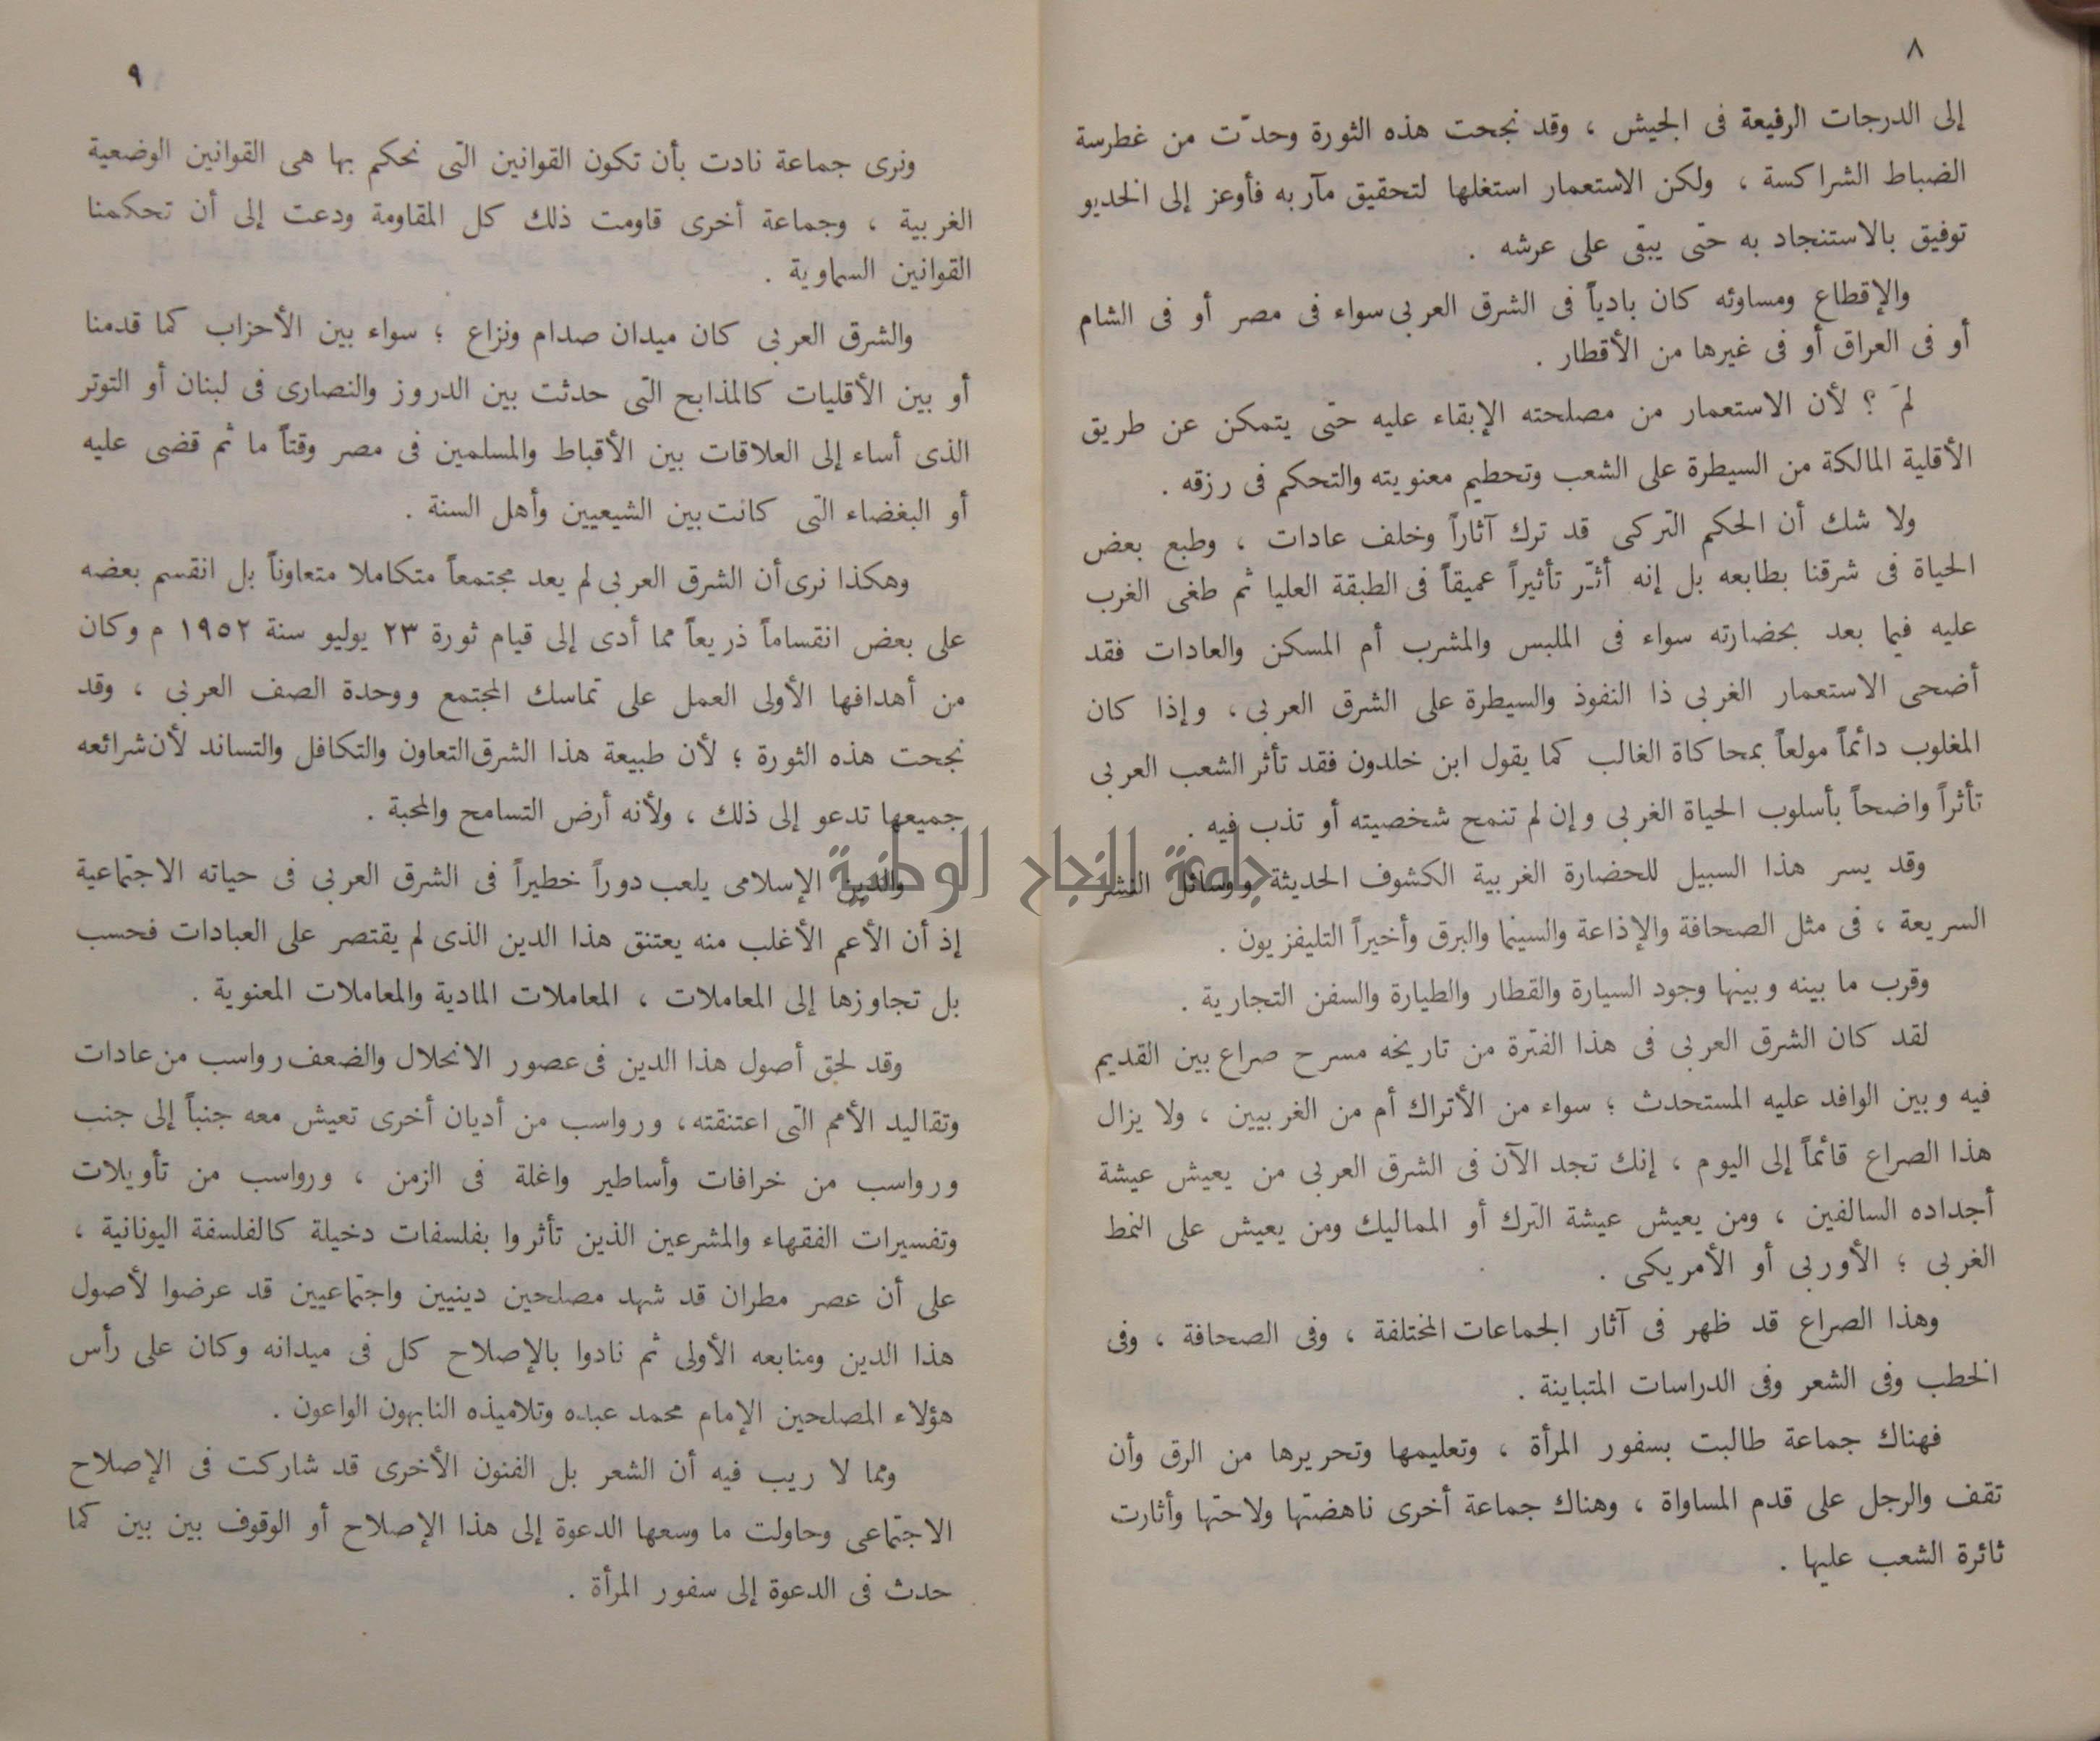 ٨
إلى الدرجات الرفيعة فى الجيش ، وقد نجحت هذه الثورة وحدّت من غطرسة
الضباط الشراكسة ، ولكن الاستعمار استغلها لتحقيق مآربه فأوعز إلى الخديو
توفيق بالاستنجاد به حتى يبقى على عرشه .
والإقطاع ومساوئه كان بادياً فى الشرق العربى سواء فى مصر أو فى الشام
أو فى العراق أو فى غيرها من الأقطار .
لمَ ؟ لأن الاستعمار من مصلحته الإبقاء عليه حتى يتمكن عن طريق
الأقلية المالكة من السيطرة على الشعب وتحطيم معنويته والتحكم فى رزقه .
ولا شك أن الحكم التركى قد ترك آثاراً وخلف عادات ، وطبع بعض
الحياة فى شرقنا بطابعه بل إنه أثـّر تأثيراً عميقاً فى الطبقة العليا ثم طغى الغرب
عليه فيما بعد بحضارته سواء فى الملبس والمشرب أم المسكن والعادات فقد
أضحى الاستعمار الغربى ذا النفوذ والسيطرة على الشرق العربى ، وإذا كان
المغلوب دائماً مولعاً بمحاكاة الغالب كما يقول ابن خلدون فقد تأثر الشعب العربى
تأثراً واضحاً بأسلوب الحياة الغربى وإن لم تنمح شخصيته أو تذب فيه .
وقد يسر هذا السبيل للحضارة الغربية الكشوف الحديثة ووسائل النشر
السريعة ، فى مثل الصحافة والإذاعة والسينما والبرق وأخيراً التليفزيون .
وقرب ما بينه وبينها وجود السيارة والقطار والطيارة والسفن التجارية .
لقد كان الشرق العربى فى هذا الفترة من تاريخه مسرح صراع بين القديم
فيه وبين الوافد عليه المستحدث ؛ سواء من الأتراك أم من الغربيين ، ولا يزال
هذا الصراع قائماً إلى اليوم ، إنك تجد الآن فى الشرق العربى من يعيش عيشة
أجداده السالفين ، ومن يعيش عيشة الترك أو المماليك ومن يعيش على النمط
الغربى ؛ الأوربى أو الأمريكى .
وهذا الصراع قد ظهر فى آثار الجماعات المختلفة ، وفى الصحافة ، وفى
الخطب وفى الشعر وفى الدراسات المتباينة .
فهناك جماعة طالبت بسفور المرأة ، وتعليمها وتحريرها من الرق وأن
تقف والرجل على قدم المساواة ، وهناك جماعة أخرى ناهضتها ولاحتها وأثارت
ثائرة الشعب عليها .
٩
ونرى جماعة نادت بأن تكون القوانين التى نحكم بها هى القوانين الوضعية
الغربية ، وجماعة أخرى قاومت ذلك كل المقاومة ودعت إلى أن تحكمنا
القوانين السماوية .
والشرق العربى كان ميدان صدام ونزاع ؛ سواء بين الأحزاب كما قدمنا
أو بين الأقليات كالمذابح التى حدثت بين الدروز والنصارى فى لبنان أو التوتر
الذى أساء إلى العلاقات بين الأقباط والمسلمين فى مصر وقتاً ما ثم قضى عليه
أو البغضاء التى كانت بين الشيعيين وأهل السنة .
وهكذا نرى أن الشرق العربى لم يعد مجتمعاً متكاملا متعاوناً بل انقسم بعضه
على بعض انقساماً ذريعاً مما أدى إلى قيام ثورة ٢٣ يوليو سنة ١٩٥٢ م وكان
من أهدافها الأولى العمل على تماسك المجتمع ووحدة الصف العربى ، وقد
نجحت هذه الثورة ؛ لأن طبيعة هذا الشرق التعاون والتكافل والتساند لأن شرائعه
جميعها تدعو إلى ذلك ، ولأنه أرض التسامح والمحبة .
والدين الإسلامى يلعب دوراً خطيراً فى الشرق العربى فى حياته الاجتماعية
إذ أن الأعم الأغلب منه يعتنق هذا الدين الذى لم يقتصر على العبادات فحسب
بل تجاوزها إلى المعاملات ، المعاملات المادية والمعاملات المعنوية .
وقد لحق أصول هذا الدين فى عصور الانحلال والضعف رواسب من عادات
وتقاليد الأمم التى اعتنقته ، ورواسب من أديان أخرى تعيش معه جنباً إلى جنب
ورواسب من خرافات وأساطير واغلة فى الزمن ، ورواسب من تأويلات
وتفسيرات الفقهاء والمشرعين الذين تأثروا بفلسفات دخيلة كالفلسفة اليونانية ،
على أن عصر مطران قد شهد مصلحين دينيين واجتماعيين قد عرضوا لأصول
هذا الدين ومنابعه الأولى ثم نادوا بالإصلاح كل فى ميدانه وكان على رأس
هؤلاء المصلحين الإمام محمد عبده وتلاميذه النابهون الواعون .
ومما لا ريب فيه أن الشعر بل الفنون الأخرى قد شاركت فى الإصلاح
الاجتماعى وحاولت ما وسعها الدعوة إلى هذا الإصلاح أو الوقوف بين بين كما
حدث فى الدعوة إلى سفور المرأة .
جامعة النجاح الوطنية